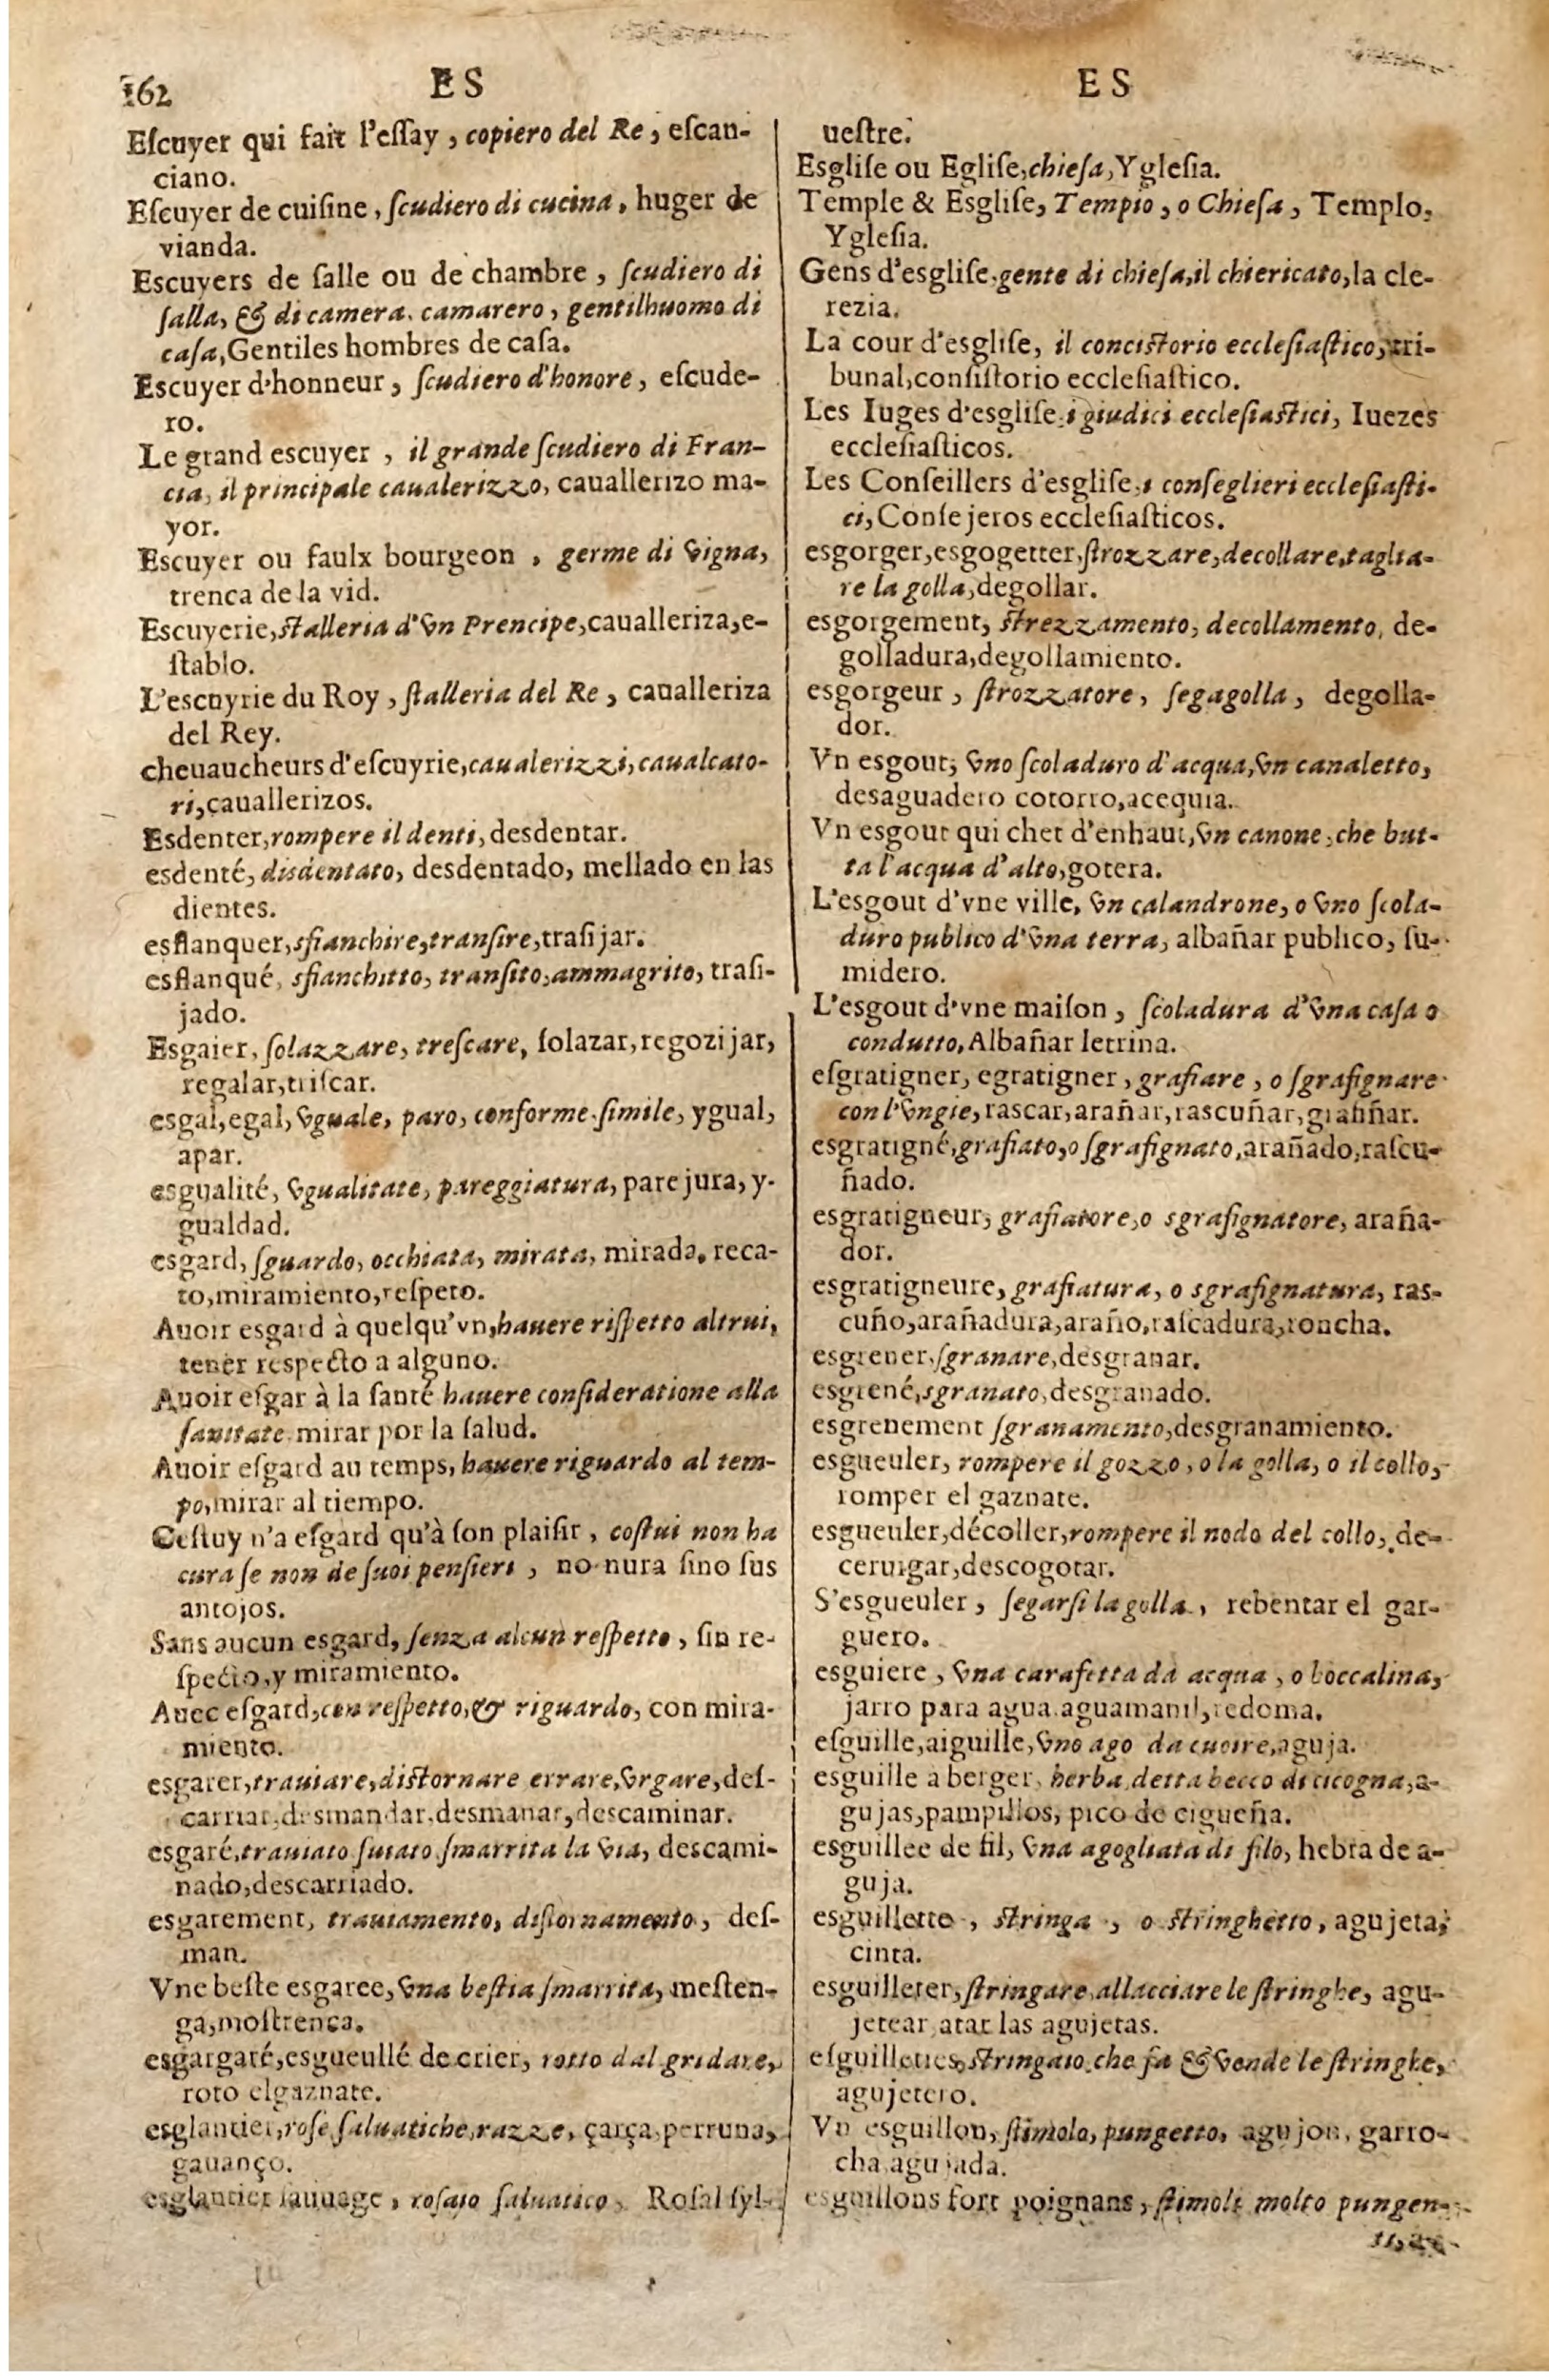 162 ES ES
Eſcuyer qui fait l'eſſay, copiero del Re, eſcan-
ciano.
Eſcuyer de cuiſine, ſcudiero di cucina, huger de
vianda.
Escuyers de ſalle ou de chambre, ſcudiero di
ſalla, & di camera. camarero, gentilhuomo di
caſa, Gentiles hombres de caſa.
Escuyer d'honneur, ſcudiero d'honore, eſcude-
ro.
Le grand escuyer, il grande ſcudiero di Fran-
cia, il principale caualerizzo, cauallerizo ma-
yor.
Escuyer ou faulx bourgeon, germe di vigna,
trenca de la vid.
Escuyerie, ſtalleria d'vn Prencipe, caualleriza, e-
ſtablo.
L'escuyrie du Roy, ſtalleria del Re, caualleriza
del Rey.
cheuaucheurs d'eſcuyrie, caualerizzi, caualcato-
ri, cauallerizos.
Esdenter, rompere il denti, desdentar.
esdenté, disdentato, desdentado, mellado en las
dientes.
esflanquer, sfianchire, tranſire, traſijar.
esflanqué, sfianchitto, tranſito, ammagrito, traſi-
jado.
Esgaier, ſolazzare, treſcare, ſolazar, regozijar,
regalar, triſcar.
esgal, egal, vguale, paro, conforme ſimile, ygual,
apar.
esgualité, vgualitate, pareggiatura, parejura, y-
gualdad.
esgard, ſguardo, occhiata, mirata, mirada, reca-
to, miramiento, reſpeto.
Auoir esgard à quelqu'vn, hauere riſpetto altrui,
tener respecto a alguno.
Auoir eſgar à la ſanté hauere conſideratione alla
ſanitate mirar por la ſalud.
Auoir eſgard au temps, hauere riguardo al tem-
po, mirar al tiempo.
Ceſtuy n'a eſgard qu'à ſon plaiſir, coſtui non ha
cura ſe non de ſuoi penſieri, no nura ſino ſus
antojos.
Sans aucun esgard, ſenza alcun reſpetto, ſin re-
ſpecto, y miramiento.
Auec eſgard, con reſpetto, & riguardo, con mira-
miento.
esgarer, trauiare, diſtornare errare, vrgare, deſ-
carriar, desmandar, desmanar, descaminar.
esgaré, trauiato ſuiato ſmarrita la via, descami-
nado, descarriado.
esgarement, trauiamento, diſtornamento, deſ-
man.
Vne beſte esgaree, vna beſtia ſmarrita, meſten-
ga, moſtrenca.
esgargaté, esgueullé de crier, rotto dal gridare,
roto elgaznate.
esglantier, roſe ſaluatiche, razze, çarça perruna,
gauanço.
esglantier ſauuage, roſaio ſaluatico, Roſal ſyl-
ueſtre.
Esgliſe ou Egliſe, chieſa, Ygleſia.
Temple & Esgliſe, Tempio, o Chieſa, Templo,
Ygleſia.
Gens d'esgliſe, gente di chieſa, il chiericato, la cle-
rezia.
La cour d'esgliſe, il conciſtorio eccleſiaſtico, tri-
bunal, conſiſtorio eccleſiaſtico.
Les Iuges d'esgliſe, i giudici eccleſiaſtici, Iuezes
eccleſiaſticos.
Les Conſeillers d'esgliſe, i conſeglieri eccleſiaſti-
ci, Conſejeros eccleſiaſticos.
esgorger, esgogetter, ſtrozzare, decollare, taglia-
re la golla, degollar.
esgorgement, ſtrezzamento, decollamento, de-
golladura, degollamiento.
esgorgeur, ſtrozzatore, ſegagolla, degolla-
dor.
Vn esgout, vno ſcoladuro d'acqua, vn canaletto,
desaguadero cotorro, acequia.
Vn esgout qui chet d'enhaut, vn canone, che but-
ta l'acqua d'alto, gotera.
L'esgout d'vne ville, vn calandrone, o vno ſcola-
duro publico d'vna terra, albañar publico, ſu-
midero.
L'esgout d'vne maiſon, ſcoladura d'vna caſa o
condutto, Albañar letrina.
eſgratigner, egratigner, grafiare, o ſgrafignare
con l'vngie, rascar, arañar, rascuñar, grafiñar.
esgratigné, grafiato, o ſgrafignato, arañado, raſcu-
ñado.
esgratigneur, grafiatore, o sgrafignatore, araña-
dor.
esgratigneure, grafiatura, o sgrafignatura, ras-
cuño, arañadura, araño, raſcadura, roncha.
esgrener, ſgranare, desgranar.
esgrené, sgranato, desgranado.
esgrenement ſgranamento, desgranamiento.
esgueuler, rompere il gozzo, o la golla, o il collo,
romper el gaznate.
esgueuler, décoller, rompere il nodo del collo, de-
ceruigar, descogotar.
S'esgueuler, ſegarſi la golla, rebentar el gar-
guero.
esguiere, vna carafetta da acqua, o boccalina,
jarro para agua aguamanil, redoma.
eſguille, aiguille, vno ago da cucire, aguja.
esguille a berger, herba detta becco di cicogna, a-
gujas, pampillos, pico de cigueña.
esguillee de fil, vna agogliata di filo, hebra de a-
guja.
esguillette, ſtringa, o ſtringhetto, agujeta,
cinta.
esguilleter, ſtringare, allacciare le ſtringhe, agu-
jetear atar las agujetas.
eſguilletier, ſtringaio, che fa & vende le ſtringhe,
agujetero.
Vn esguillon, ſtimolo, pungetto, agujon, garro-
cha, aguijada.
esguillons fort poignans, ſtimoli molto pungen-